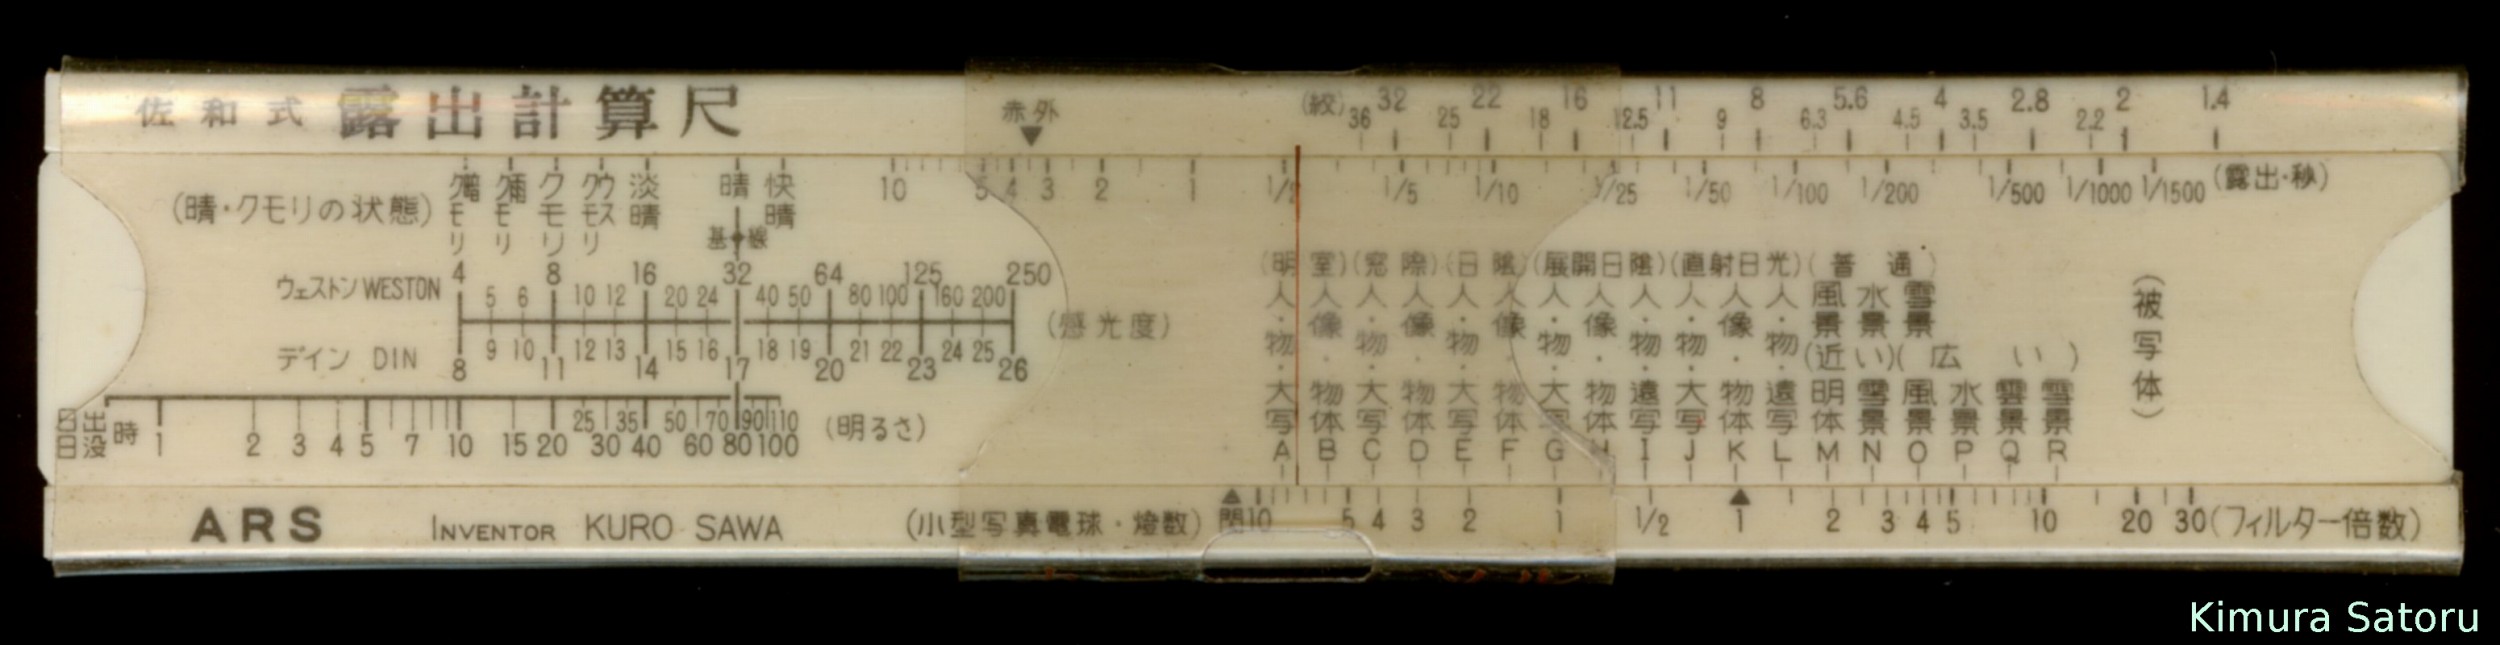 佐和式 露出計算尺
赤外
(絞) 32 22 16 11 8 5.6 4 2.8 2 1.4
36 25 18 12.5 9 6.3 4.5 3.5 2.2
(晴・クモリの状態)
クモリ
ウスクモリ
淡晴
晴
快晴
10 5 4 3 2 1 1/2 1/5 1/10 1/25 1/50 1/100 1/200 1/500 1/1000 1/1500 (露出・秒)
基線
ウェストン WESTON 4 8 16 32 64 125 250
5 6 10 12 20 24 40 50 80 100 160 200
(感光度)
9 10 12 13 15 16 18 19 21 22 24 25
デイン DIN 8 11 14 17 20 23 26
(明室) (窓際) (日陰) (展開日陰) (直射日光) (普通)
人・物大写 A
人像・物体 B
人・物大写 C
人像・物体 D
人・物大写 E
人像・物体 F
人・物大写 G
人像・物体 H
人・物遠写 I
人・物大写 J
人像・物体 K
人・物遠写 L
風景 水景 雪景
(近い) (広い)
明体 M
雪景 N
風景 O
水景 P
雲景 Q
雪景 R
(被写体)
日出
日没
時
25 35 50 70 90 110
1 2 3 4 5 7 10 15 20 30 40 60 80 100
(明るさ)
ARS INVENTOR KURO SAWA
(小型写真電球・燈数) 閃 10 5 4 3 2 1 1/2 1 2 3 4 5 10 20 30 (フィルター倍数)
Kimura Satoru